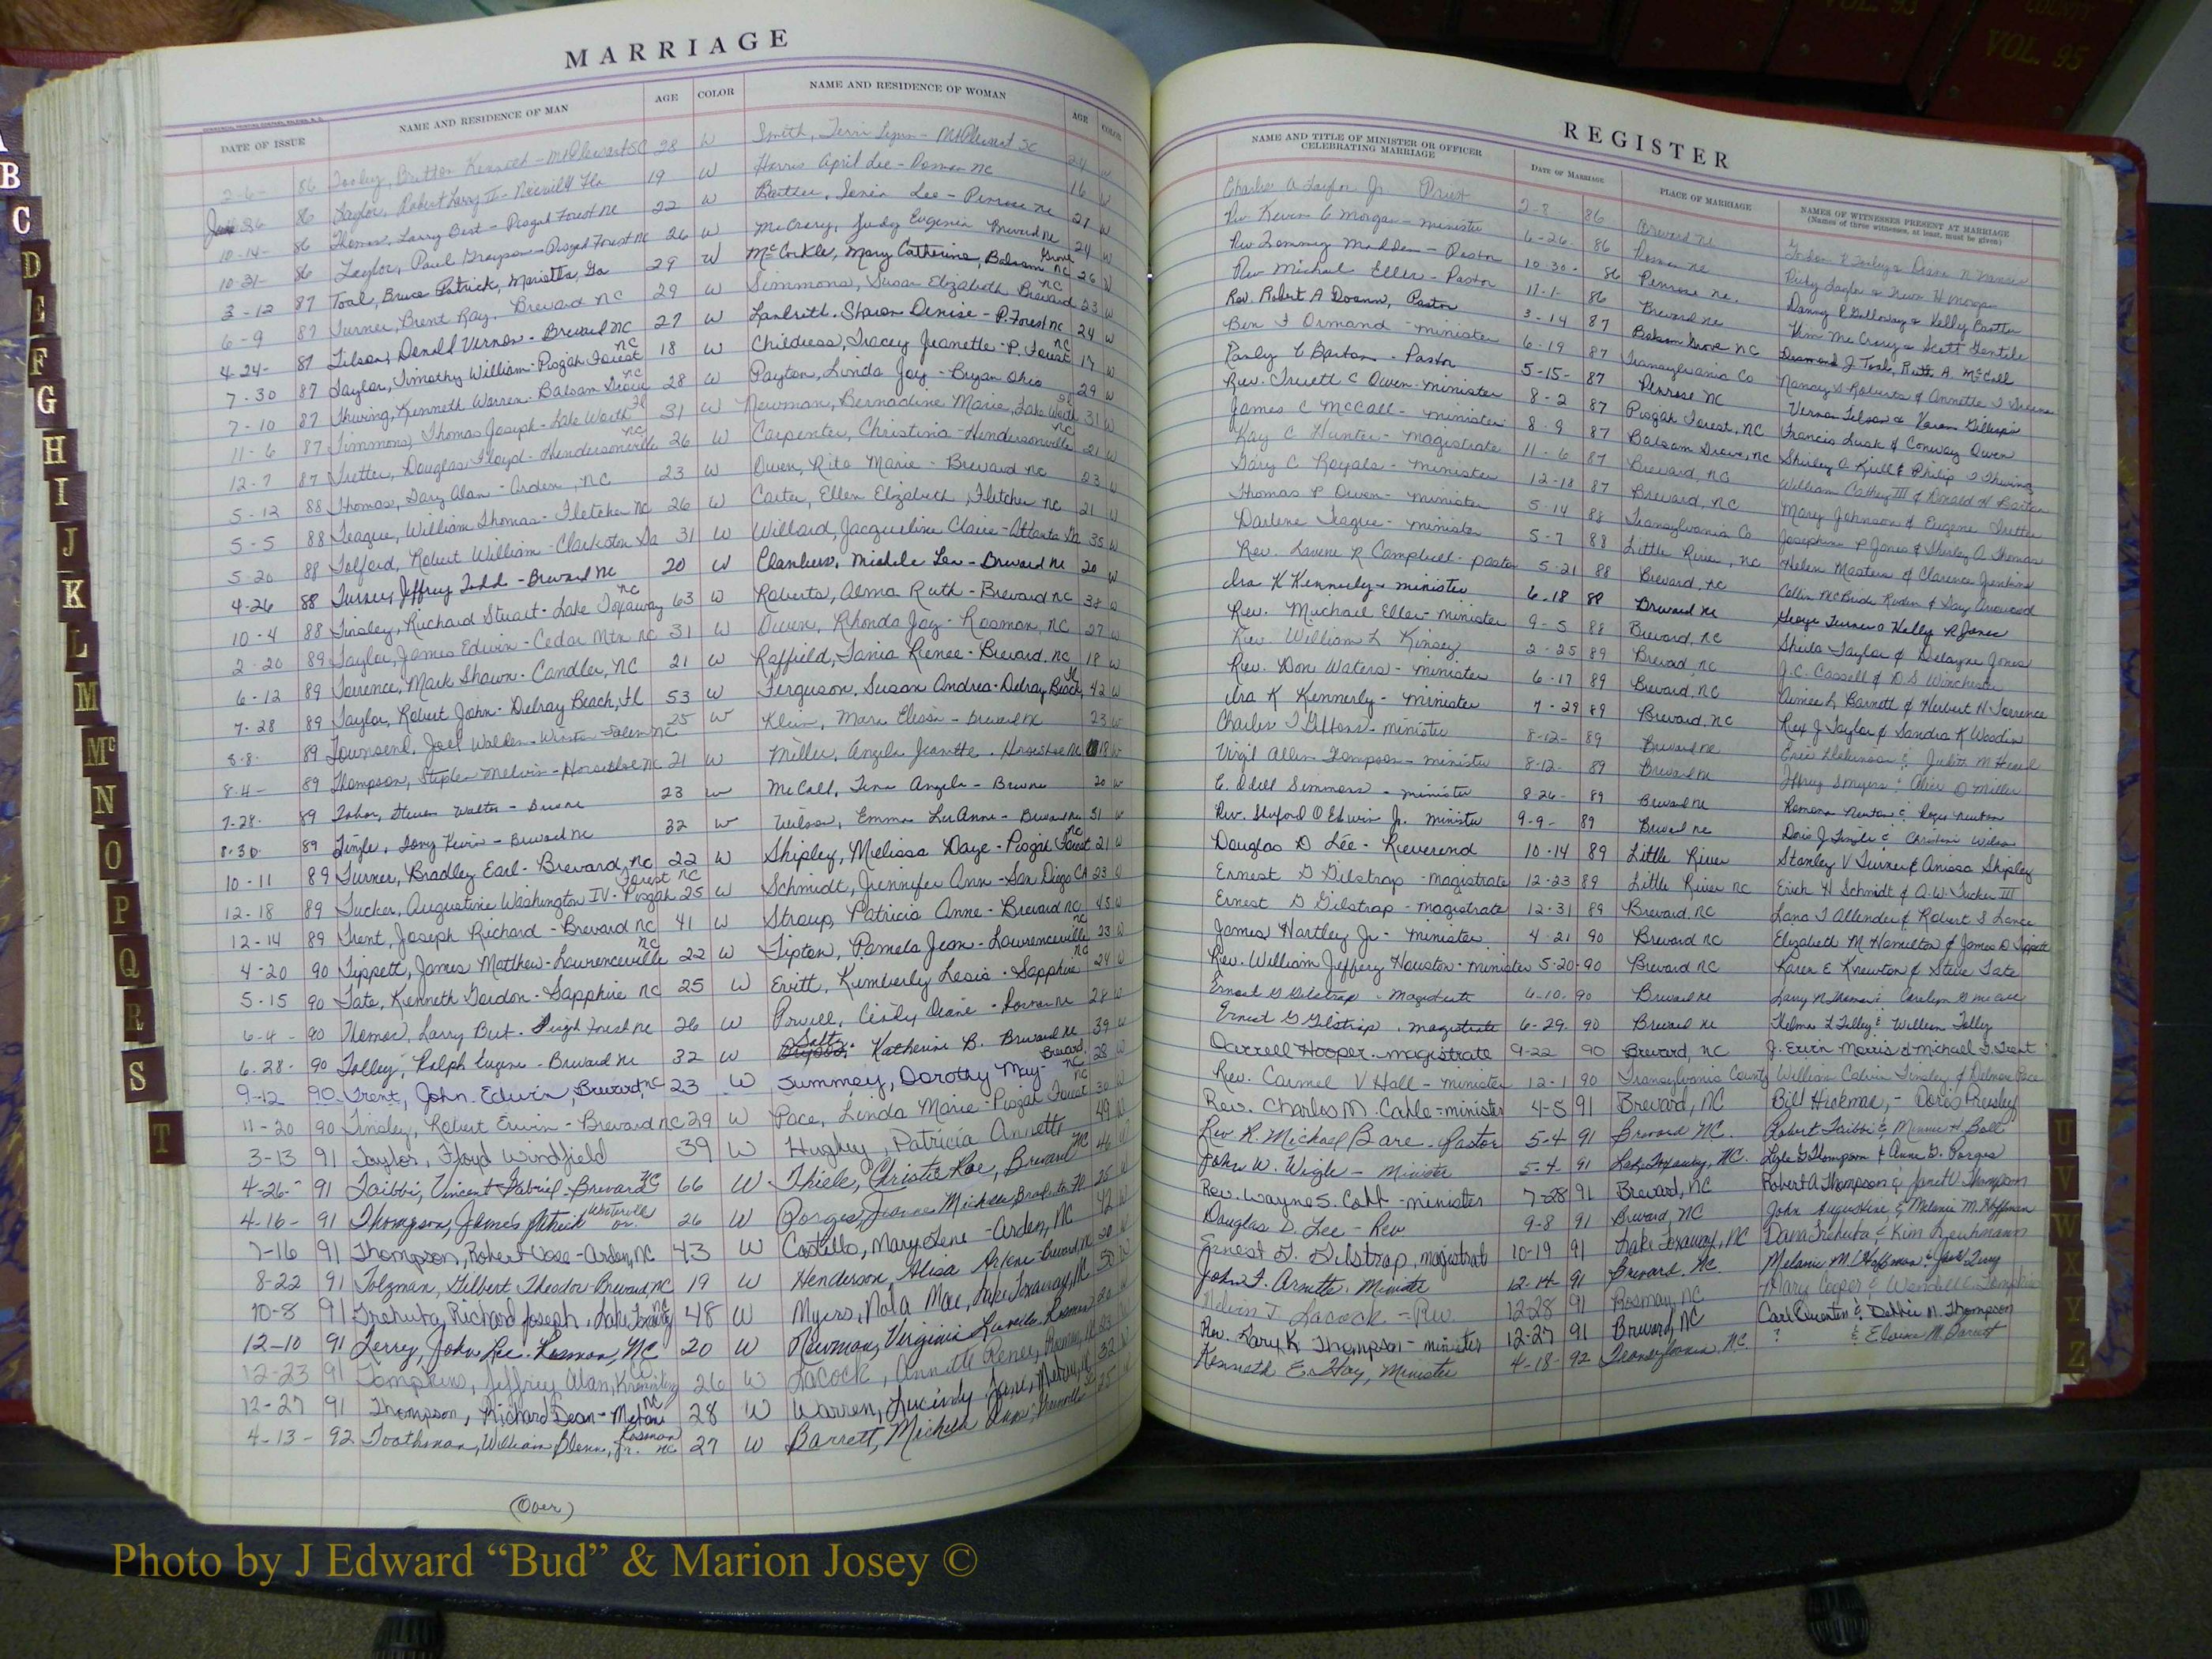 MARRIAGE
DATE OF ISSUE
NAME AND RESIDENCE OF MAN
AGE
COLOR
NAME AND RESIDENCE OF WOMAN
AGE
COLOR
2-6- 86 Tooley, Britton Kenneth - Mt Pleasant SC 28 W Smith, Terri Lynn - Mt Pleasant SC 24 W
86 Taylor, Robert Larry II - Fla 19 W Harris April Lee - Rosman NC 16 W
10-14- 86 Thomas, Larry Bert - Pisgah Forest NC 22 W Lee - Penrose NC 27 W
10-31- 86 Taylor, Paul Grayson - Pisgah Forest NC 26 W McCrary, Judy Eugenia Brevard NC 24 W
3-12 87 Toal, Bruce Patrick, Marietta, Ga 29 W McCorkle, Mary Catherine, Balsam Grove NC 26 W
6-9 87 Turner, Brent Ray, Brevard NC 29 W Simmons, Susan Elizabeth Brevard 23 W
4-24- 87 Tilson, Donald Vernon - Brevard NC 27 W Sharon Denise - P. Forest NC 24 W
7-30 87 Taylor, Timothy William - Pisgah Forest NC 18 W Childress, Tracey Jeanette - P. Forest NC 17 W
7-10 87 Thuring, Kenneth Warren - Balsam Grove NC 28 W Payton, Linda Joy - Bryan Ohio 29 W
11-6 87 Timmons, Thomas Joseph - Lake Worth Fl 31 W Newman, Bernadine Marie, Lake Worth 31 W
12-7 87 Tritter, Douglas Floyd - Hendersonville NC 26 W Carpenter, Christina - Hendersonville NC 21 W
5-12 88 Thomas, Gary Alan - Arden, NC 23 W Owen, Rita Marie - Brevard NC 23 W
5-5 88 Teague, William Thomas - Fletcher NC 26 W Carter, Ellen Elizabeth, Fletcher NC 21 W
5-20 88 Tolford, Robert William - Clarkston Ga 31 W Willard, Jacqueline Claire - Atlanta Ga 35 W
4-26 88 Turner, Jeffrey Todd - Brevard NC 20 W Chambers, Michele Lea - Brevard NC 20 W
10-4 88 Tinsley, Richard Stuart - Lake Toxaway NC 63 W Roberts, Alma Ruth - Brevard NC 38 W
2-20 89 Taylor, James Edwin - Cedar Mtn NC 31 W Owen, Rhonda Joy - Rosman, NC 27 W
6-12 89 Torrence, Mark Shawn - Candler, NC 21 W Raffield, Tania Renee - Brevard, NC 18 W
7-28 89 Taylor, Robert John - Delray Beach, Fl 53 W Ferguson, Susan Andrea - Delray Beach, Fl 42 W
8-8- 89 Townsend, Joel Walden - Winston-Salem NC 25 W Klein, Mara Elissa - Brevard NC 23 W
8-4- 89 Thompson, Stephen Melvin - Horseshoe NC 21 W Miller, Angela Jeanette - Horseshoe NC 18 W
7-28- 89 Steven Walter 23 W McCall, Tina Angela 20 W
8-30- 89 Tingle, Tony Kevin - Brevard NC 32 W Wilson, Emma LuAnne - Brevard NC 31 W
10-11 89 Turner, Bradley Earl - Brevard, NC 22 W Shipley, Melissa Daye - Pisgah Forest NC 21 W
12-18 89 Tucker, Augustine Washington IV - Pisgah Forest NC 25 W Schmidt, Jennifer Ann - San Diego CA 23 W
12-14 89 Trent, Joseph Richard - Brevard NC 41 W Stroup, Patricia Anne - Brevard NC 45 W
4-20 90 Tippett, James Matthew - Lawrenceville NC 22 W Tipton, Pamela Jean - Lawrenceville NC 23 W
5-15 90 Tate, Kenneth Gordon - Sapphire NC 25 W Evitt, Kimberly Lesia - Sapphire NC 24 W
6-4- 90 Thomas, Larry Bert - Pisgah Forest NC 26 W Powell, Cindy Diane - Rosman NC 28 W
6-28- 90 Tolley, Ralph Eugene - Brevard NC 32 W Katherine B. Brevard NC 39 W
9-12 90 Trent, John Edwin, Brevard, NC 23 W Summey, Dorothy May - Brevard NC 28 W
11-20 90 Tinsley, Robert Erwin - Brevard NC 29 W Pace, Linda Marie - Pisgah Forest NC 30 W
3-13 91 Taylor, Floyd Windfield 39 W Hughey, Patricia Annette 49 W
4-26- 91 Taibbi, Vincent Gabriel - Brevard NC 66 W Thiele, Christie Rae, Brevard NC 46 W
4-16- 91 Thompson, James Patrick 26 W Porges, Michelle, Fl 25 W
7-16 91 Thompson, Robert Vose - Arden, NC 43 W Costello, Mary Lene - Arden, NC 42 W
8-22 91 Tolzman, Gilbert Theodor - Brevard, NC 19 W Henderson, Alisa Arlene - Brevard, NC 20 W
10-8 91 Trehuba, Richard Joseph, Lake Toxaway NC 48 W Myers, Nola Mae, Lake Toxaway, NC 50 W
12-10 91 Terry, John Lee - Rosman, NC 20 W Newman, Virginia Luvella Rosman 20 W
12-23 91 Tompkins, Jeffrey Alan, 26 W Lacock, Annette Renee, 23 W
12-27 91 Thompson, Richard Dean - NC 28 W Warren, Lucindy Jane, 32 W
4-13- 92 Toothman, William Glenn, Jr. Rosman NC 27 W Barrett, Michelle 25 W
(Over)
REGISTER
NAME AND TITLE OF MINISTER OR OFFICER CELEBRATING MARRIAGE
DATE OF MARRIAGE
PLACE OF MARRIAGE
NAMES OF WITNESSES PRESENT AT MARRIAGE
(Names of three witnesses, at least, must be given)
Charles A Taylor Jr Priest 2-8 86 Brevard NC
Rev Kevin C Morgan - minister 6-26- 86 Rosman NC
Rev Tommy Madden - Pastor 10-30- 86 Penrose NC.
Rev Michael Eller - Pastor 11-1- 86 Brevard NC Kim McCrary & Scott Gentile
Rev. Robert A Doann, Pastor 3-14 87 Balsam Grove NC Desmond J. Toal, Ruth A. McCall
Ben F Ormand minister 6-19 87 Transylvania Co Nancy S Roberts & Annette T
Pauly C Barton - Pastor 5-15- 87 Penrose NC Vernon Tilson & Karen Gillespie
Rev. Truett C Owen - minister 8-2 87 Pisgah Forest, NC Francis Lusk & Conway Owen
James C McCall - minister 8-9 87 Balsam Grove, NC Shirley A Krull & Philip J Thuring
Kay C Hunter - magistrate 11-6 87 Brevard, NC William Cathey III & Donald H Barton
Gary C Royals - minister 12-18 87 Brevard, NC Mary Johnson & Eugene Tritter
Thomas P Owen - minister 5-14 88 Transylvania Co Josephine P Jones & Shirley A Thomas
Darlene Teague - minister 5-7 88 Little River, NC Helen Masters & Clarence Jenkins
Rev. Lavene R Campbell - pastor 5-21 88 Brevard, NC
Ira K Kennerly - minister 6-18 88 Brevard NC George Turner & Kelly R Jones
Rev. Michael Eller - minister 9-5 88 Brevard, NC Sheila Taylor & Delayne Jones
Rev William L Kinsey 2-25 89 Brevard NC J.C. Cassell & D.S Winchester
Rev. Don Waters - minister 6-17 89 Brevard, NC Aimee L Barnett & Herbert H Torrence
Ira K Kennerly - minister 7-29 89 Brevard, NC Rex J Taylor & Sandra K Woodin
Charles T minister 8-12- 89 Brevard NC
Virgil Allen Thompson - minister 8-12- 89 Brevard NC Jeffrey S Myers & Alice D Miller
E. Odell Simmons - minister 8-26- 89 Brevard NC Ramona Newton & Roger Newton
Rev. Shuford O Edwin Jr. minister 9-9- 89 Brevard NC Doris J Tingle & Christine Wilson
Douglas D Lee - Reverend 10-14 89 Little River Stanley V Turner & Anissa Shipley
Ernest G Gilstrap - magistrate 12-23 89 Little River NC Erich H Schmidt & A.W. Tucker III
Ernest G Gilstrap - magistrate 12-31 89 Brevard, NC Lana T Allender & Robert S Lance
James Hartley Jr - minister 4-21 90 Brevard NC Elizabeth M Hamelton & James D Tippett
Rev. William Jeffery Houston - minister 5-20-90 Brevard NC Karen E Knewton & Steve Tate
Ernest G Gilstrap - Magistrate 6-10- 90 Brevard NC Larry N Thomas & Carolyn
Ernest G Gilstrap, magistrate 6-29- 90 Brevard NC Thelma L Tolley & William Tolley
Darrell Hooper - magistrate 9-22 90 Brevard, NC J. Ervin Morris & Michael G. Trent
Rev. Carmel V Hall - minister 12-1 90 Transylvania County William Calvin Tinsley & Delmar Pace
Rev. Charles M. Cable - minister 4-5 91 Brevard, NC Bill Hickman, - Doris Pressley
Rev R. Michael Bare - Pastor 5-4 91 Brevard NC. Robert Taibbi & Minnie H Ball
John W. Wigle - Minister 5-4- 91 Lake Toxaway, NC. Lyle G Thompson & Anne G. Porges
Rev. Wayne S. Cobb - minister 7-28 91 Brevard, NC Robert A Thompson & Janet V. Thompson
Douglas D. Lee - Rev 9-8 91 Brevard, NC John Augustine & Melanie M. Hoffman
Ernest G. Gilstrap, magistrate 10-19 91 Lake Toxaway, NC Dana Trehuba & Kim
John F. Arnette - Minister 12-14- 91 Brevard, NC. Melanie M. Hoffman & Jack Terry
Nelson J. Lacock = Rev 12-28 91 Rosman, NC Mary Cooper & Wendell Tompkins
Rev. Gary K Thompson - minister 12-27 91 Brevard, NC Carl Querten & Debbie M. Thompson
Kenneth E. Hoy, Minister 4-18- 92 Transylvania, NC. ? & Eloise M. Barrett
A
B
C
D
E
F
G
H
I
J
K
L
M
Mc
N
O
P
Q
R
S
T
U
V
W
X
Y
Z
VOL. 93
COUNTY
VOL. 95
Photo by J Edward “Bud” & Marion Josey ©